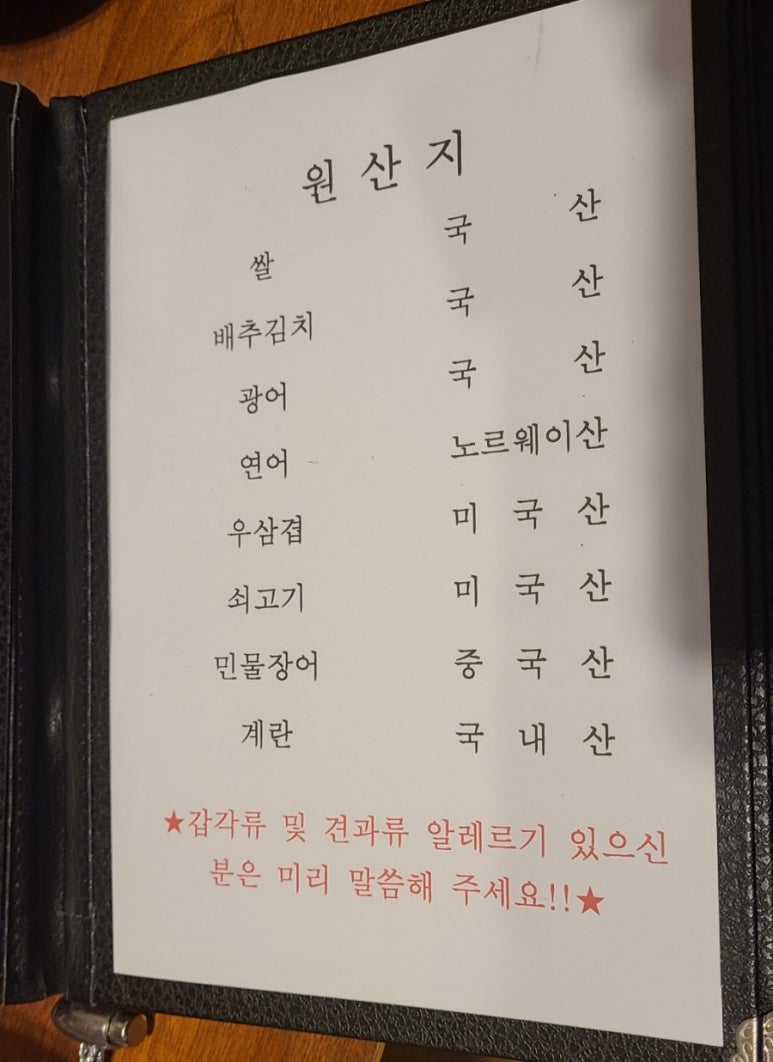 원 산 지
쌀 국 산
배추김치 국 산
광어 국 산
연어 노르웨이산
우삼겹 미 국 산
쇠고기 미 국 산
민물장어 중 국 산
계란 국 내 산
★갑각류 및 견과류 알레르기 있으신
분은 미리 말씀해 주세요!!★